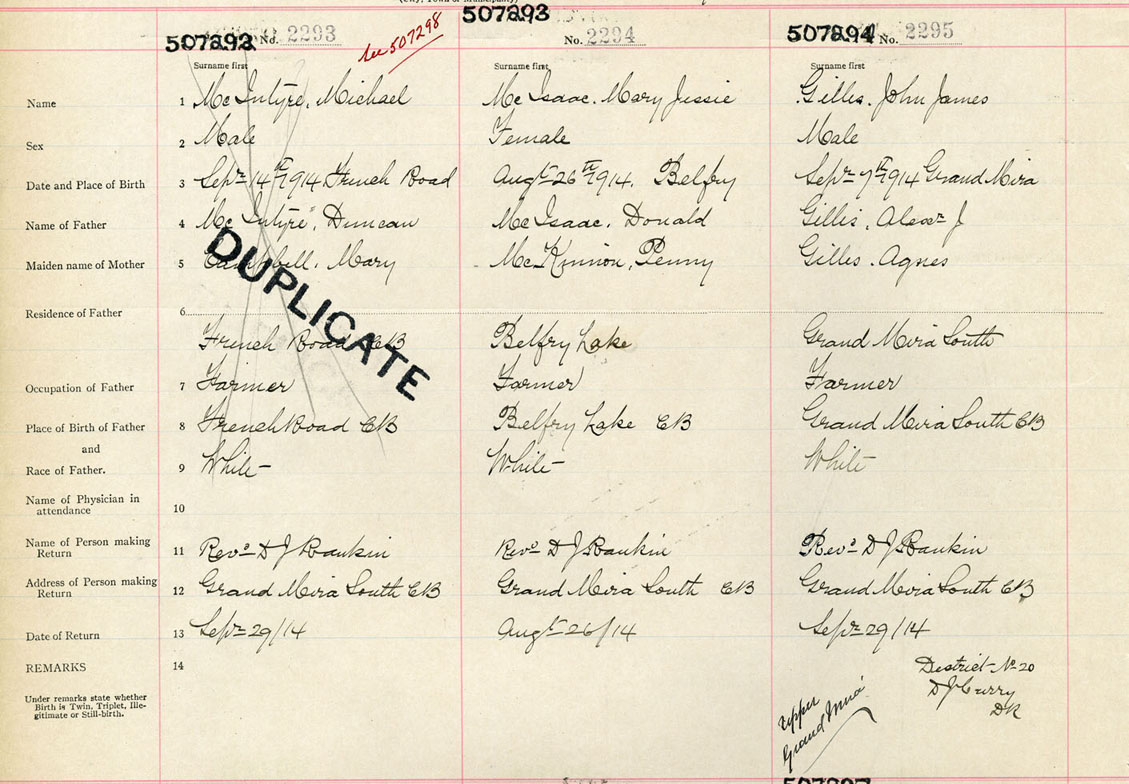 507292 No. 2293
see 507298
507293
No. 2294
507294 No. 2295
Surname first Surname first Surname first
Name 1 Mc Intyre, Michael Mc Isaac. Mary Jessie Gillis. John James
Sex 2 Male Female Male
Date and Place of Birth 3 Sepr 14th 1914 French Road Augt 26th 1914. Belfry Sepr 7th 1914 Grand Mira
Name of Father 4 Mc Intyre, Duncan Mc Isaac. Donald Gillis, Alexr J
Maiden name of Mother 5 Campbell. Mary McKinnon, Penny Gillis. Agnes
DUPLICATE
Residence of Father 6 French Road CB Belfry Lake Grand Mira South
Occupation of Father 7 Farmer Farmer Farmer
Place of Birth of Father 8 French Road CB Belfry Lake CB Grand Mira South CB
and
Race of Father. 9 White White White
Name of Physician in
attendance 10
Name of Person making
Return 11 Revd D J Rankin Revd D J Rankin Revd D J Rankin
Address of Person making
Return 12 Grand Mira South CB Grand Mira South CB Grand Mira South CB
Date of Return 13 Sepr 29/14 Augt 26/14 Sepr 29/14
REMARKS 14
Under remarks state whether
Birth is Twin, Triplet, Ille-
gitimate or Still-birth.
District No 20
D J Curry
DR
Upper
Grand Mira